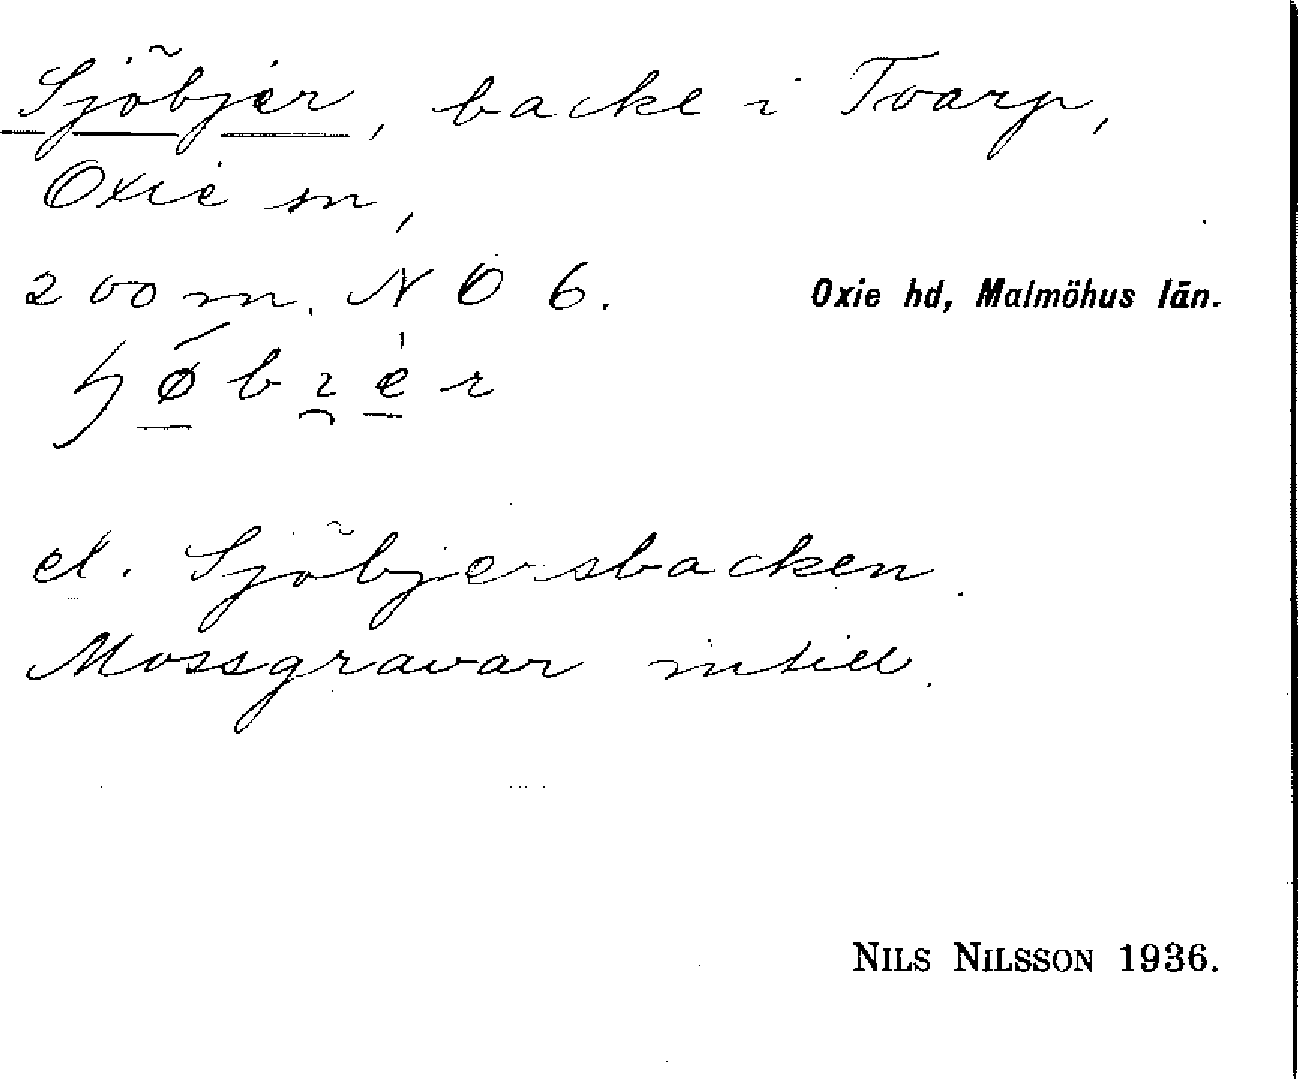 Sjöbjer, backe i Tvarp,
Oxie sn,
200 m. N Ö 6.
Oxie hd, Malmöhus län.
ɧøbi̯er
el. Sjöbjersbacken.
Mossgravar intill.
NILS NILSSON 1936.